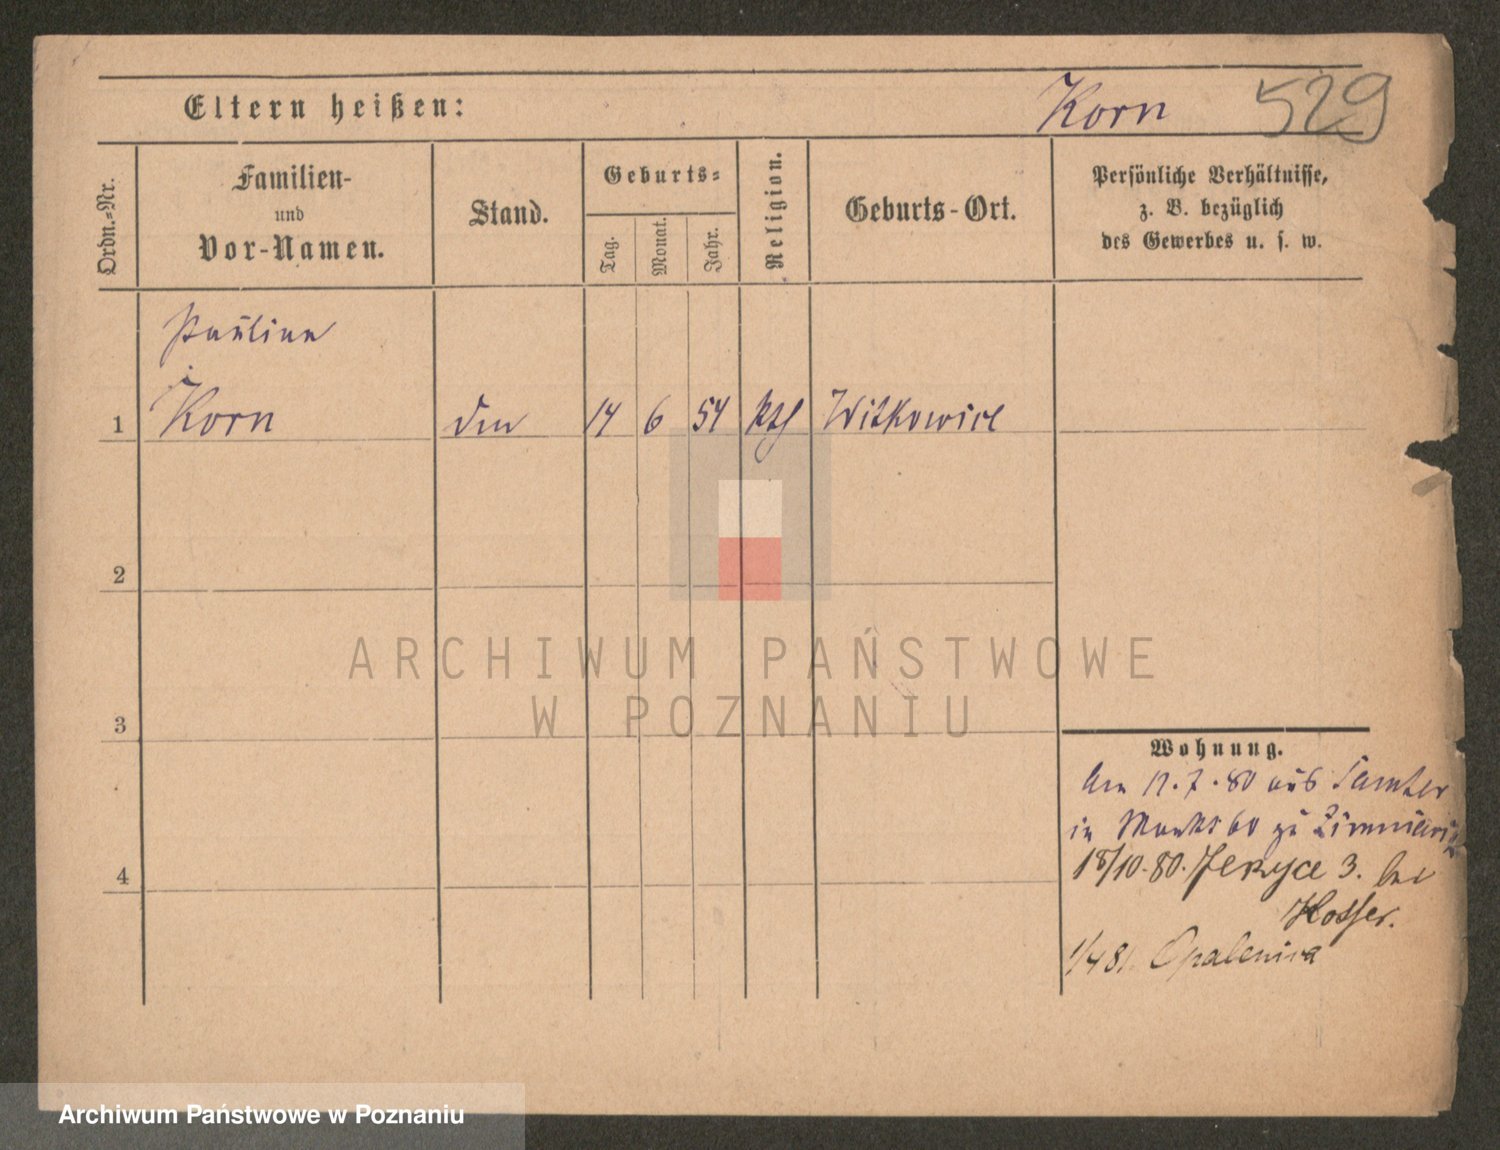 Eltern heißen:
Korn 529
Ordn.=Nr.
Familien-
und
Vor-Namen.
Stand.
Geburts=
Tag.
Monat.
Jahr.
Religion.
Geburts-Ort.
Persönliche Verhältnisse,
z. B. bezüglich
des Gewerbes u. s. w.
Pauline
1 Korn 14 6 54 kth Witkowice
2
3
4
ARCHIWUM PAŃSTWOWE
W POZNANIU
Wohnung.
7. 80 aus Samter
in Markt 60 zu
18/10. 80. Jeryce 3. bei
1/4 81. Opalenica
Archiwum Państwowe w Poznaniu